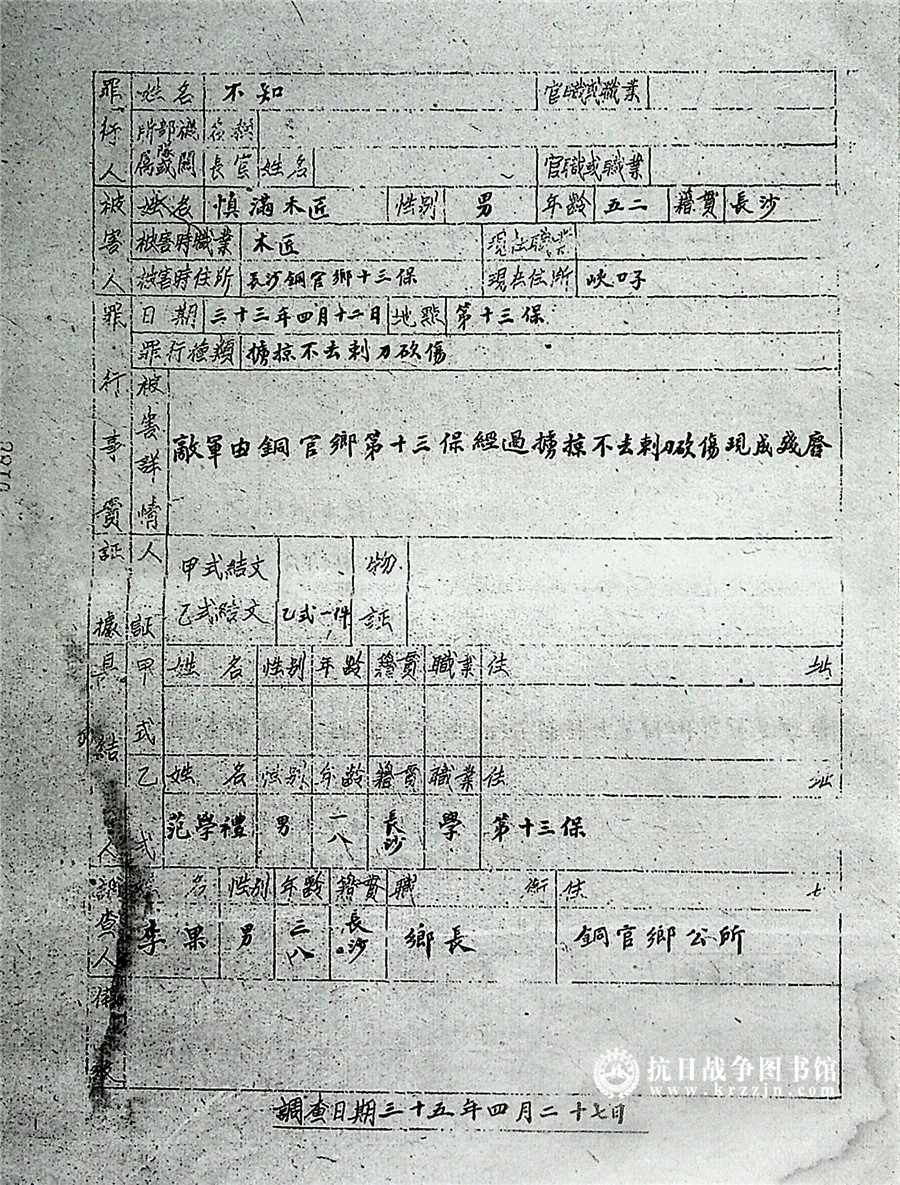 罪行人 姓名 不知 官職或職業
所屬部隊或機關 符號
長官 姓名 官職或職業
被害人 姓名 慎滿木匠 性别 男 年齡 五二 籍貫 長沙
被害時職業 木匠 現在職業
被害時住所 長沙銅官鄉十三保 現在住所 峽口子
罪行事實 日期 三十三年四月十二日 地點 第十三保
罪行種類 擄掠不去刺刀砍傷
被害詳情 敵軍由銅官鄉第十三保經過擄掠不去刺刀砍傷現成殘廢
証據 人証 甲式結文 物証
乙式結文 乙式一件
具結人 甲式 姓名 性别 年齡 籍貫 職業 住址
乙式 姓名 性别 年齡 籍貫 職業 住址
范學禮 男 一八 長沙 學 第十三保
調查人 姓名 性别 年齡 籍貫 職銜 住
李果 男 三八 長沙 鄉長 銅官鄉公所
備
調查日期三十五年四月二十七日
抗日战争图书馆
www.krzzjn.com